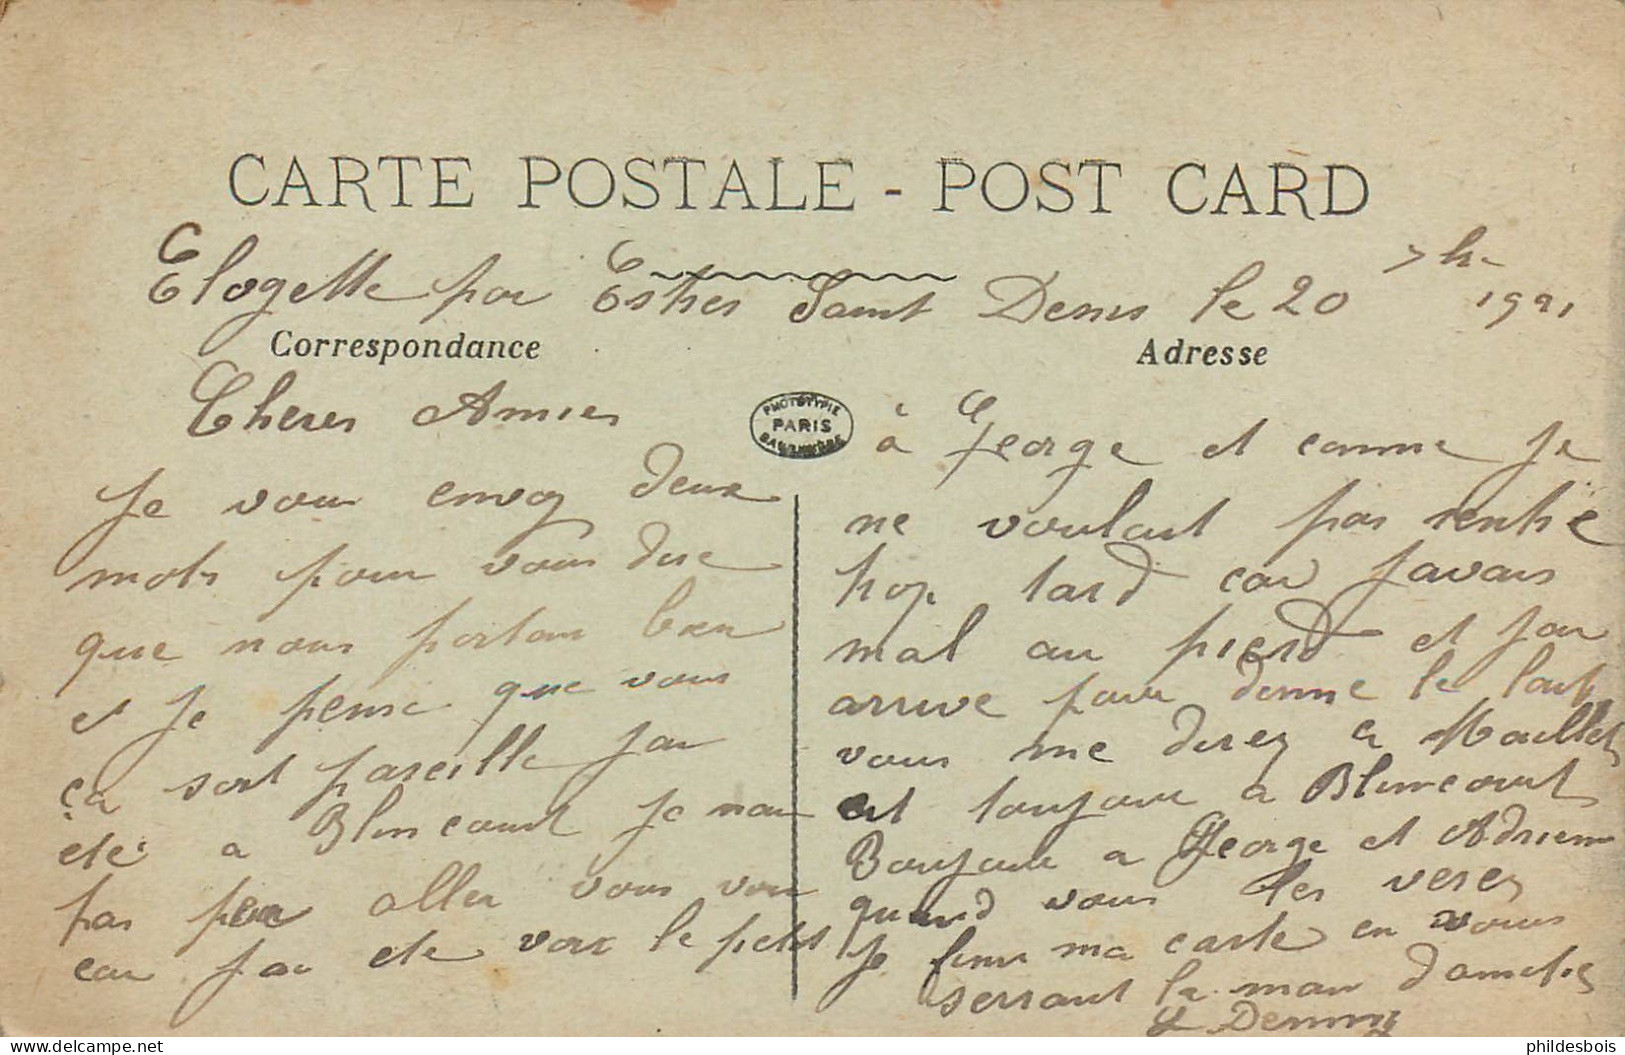 CARTE POSTALE - POST CARD
Elogette par Estres Saint Denis le 20 7h- 1921
Correspondance
Cheres Amies
Je vous envoy deux
mots pour vous dire
que nous portons bien
et je pense que vous
ça soit pareille jai
été a Blincourt je nai
pas peu aller vous voir
car jai ete voir le petit
PHOTOTYPIE
PARIS
Adresse
à George et comme je
ne voulait pas rentre
trop tard car javais
mal au pierd et jai
arrive pour donne le lait
vous me direz ci Maillet
est toujour a Blincourt
Bonjour a George et Adrienne
quand vous les verez
Je fini ma carte en vous
serrant la main damitiés
phildesbois